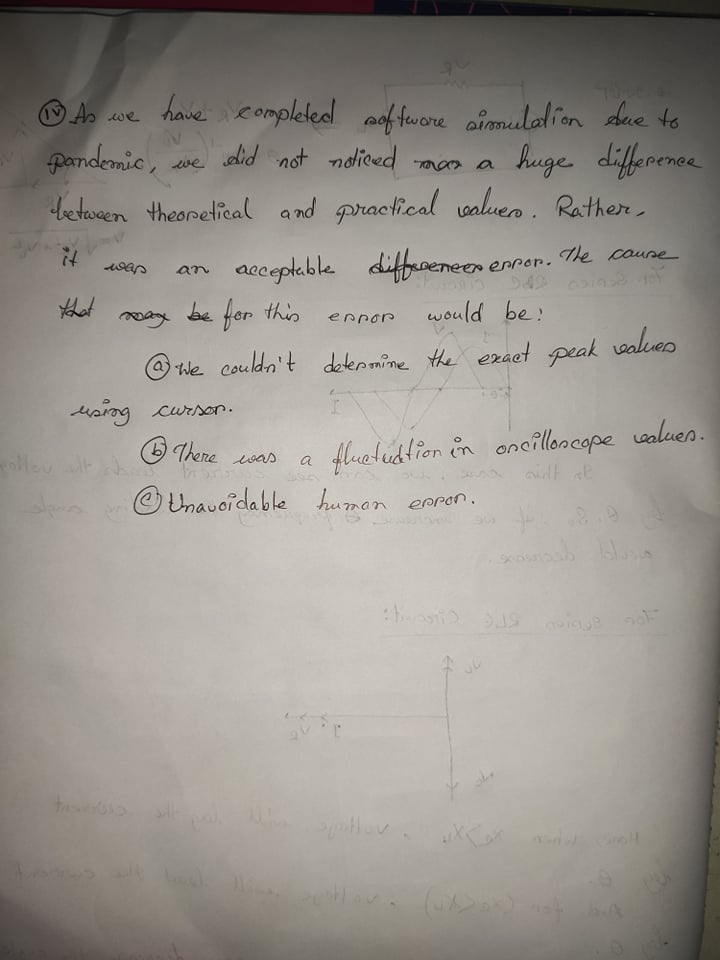 (iv) As we have completed software simulation due to
pandemic, we did not noticed a huge difference
between theoretical and practical values. Rather,
it was an acceptable differences error. The cause
that may be for this error would be:
(a) We couldn't determine the exact peak values
using cursor.
(b) There was a fluctuation in oscilloscope values.
(c) Unavoidable human error.